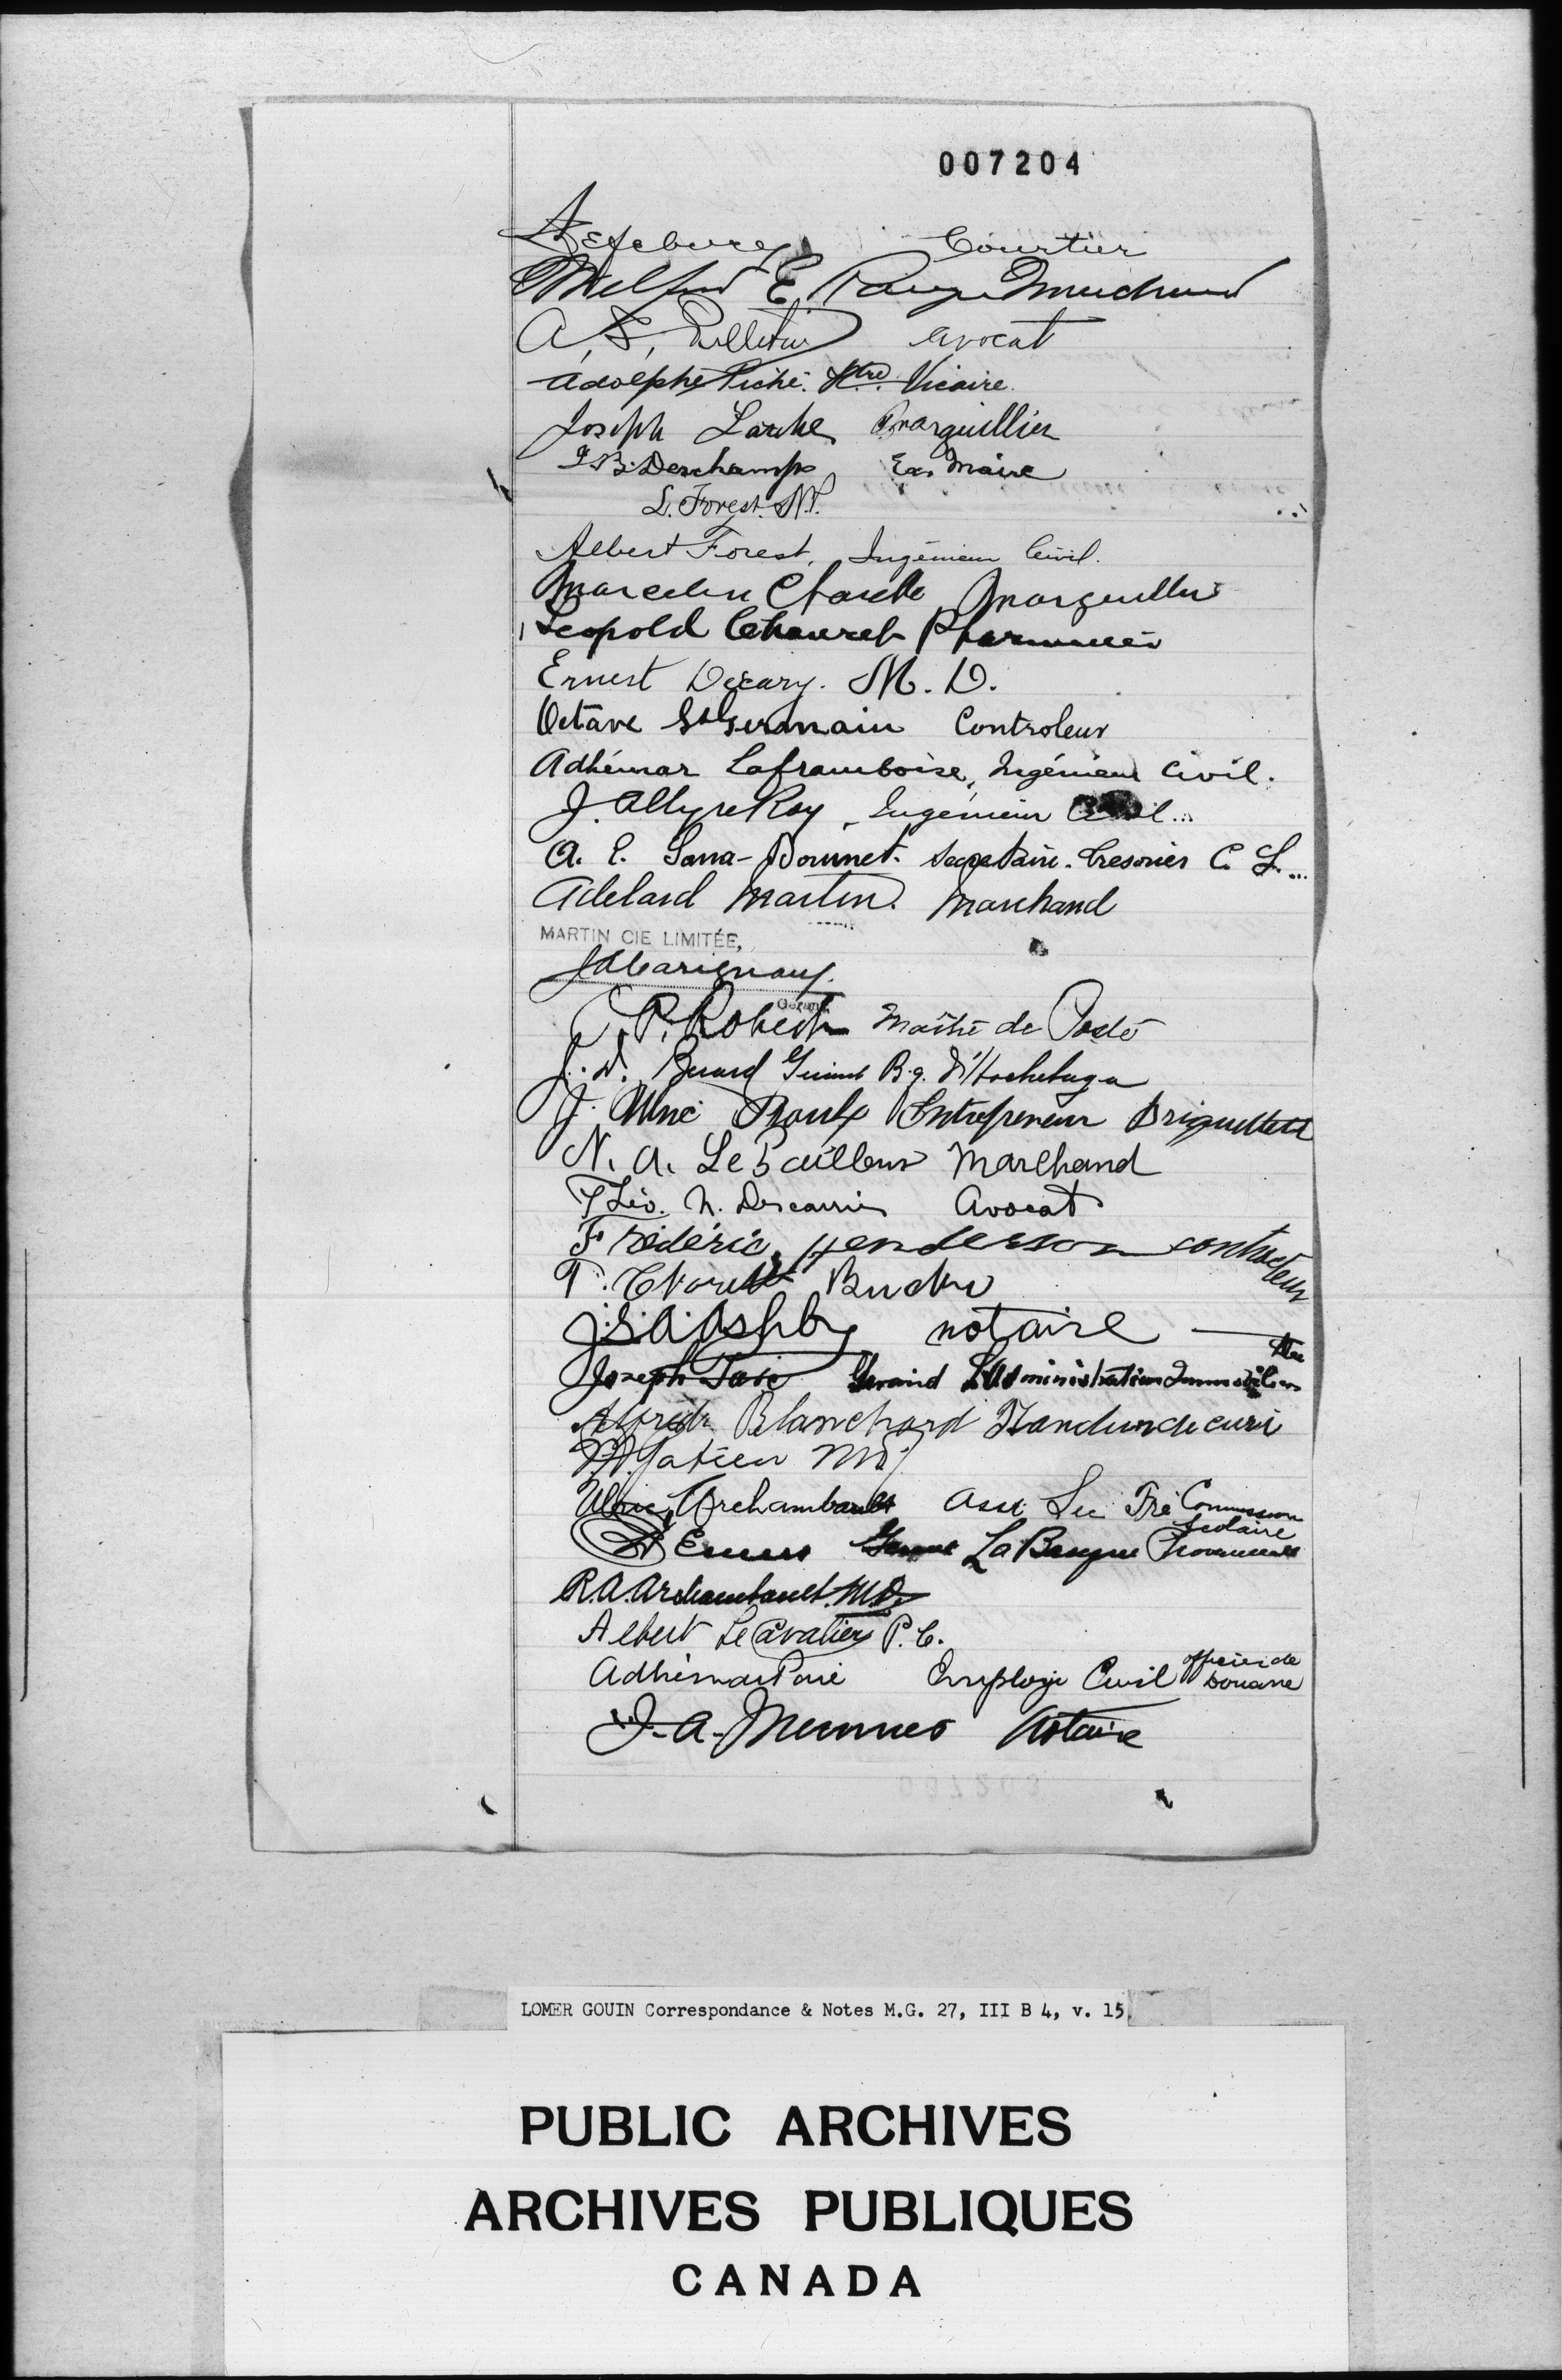 007204
Lefebvre Courtier
E.
A. S. Pelletier avocat
Adolphe Piché. Ptre. Vicaire.
Joseph Larche Marguillier
J. B. Deschamps Ex. Maire
L. Forest. N.P.
Albert Forest, Ingénieur Civil.
Marcelin Marguillier
Leopold Chauret Pharmacien
Ernest Décary. M. D.
Octave St Germain Controleur
Adhémar Laframboise, Ingénieur Civil.
J. Allyre Roy, Ingénieur Civil...
A. E. Bonnet. Secretaire-Tresorier C. S...
Adelard Martin. Marchand
MARTIN CIE LIMITÉE,
Gérant
P. Robert Maître de Poste
J. D. Gérant Bq. d'Hochelaga
J. Ulric Proulx Entrepreneur Briquetteur
N. A. LePailleur Marchand
Théo. N. Descarries Avocat
Frédéric Henderson contracteur
T. Charette
J.S.A. Ashby notaire
Joseph Gérant L'Administration Immobiliere Ltee
Alfred Blanchard
M.D.
Ulric Archambault Asst Sec Tré Commission Scolaire
Gérant La Banque Provinciale
R.A. Archambault. M.D.
Albert Le Cavalier P. C.
Adhémar Employé Civil officier de Douane
J. A. Notaire
LOMER GOUIN Correspondance & Notes M.G. 27, III B 4, v. 15
PUBLIC ARCHIVES
ARCHIVES PUBLIQUES
CANADA